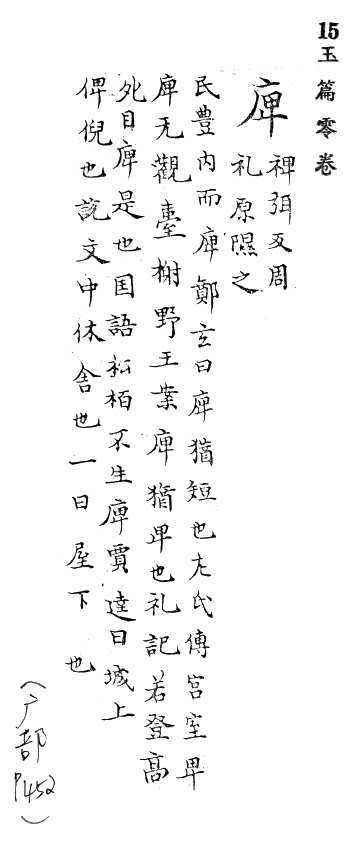 15玉篇零卷
庳
裨弭反周
礼原隰之
民豊内而庳鄭玄曰庳猶短也左氏傳宮室卑
庳无觀臺榭野王案庳猶卑也礼記若登高
死目庳是也国語松栢不生庳賈逵曰城上
俾倪也說文中休舍也一曰屋下也
(广部 P452)